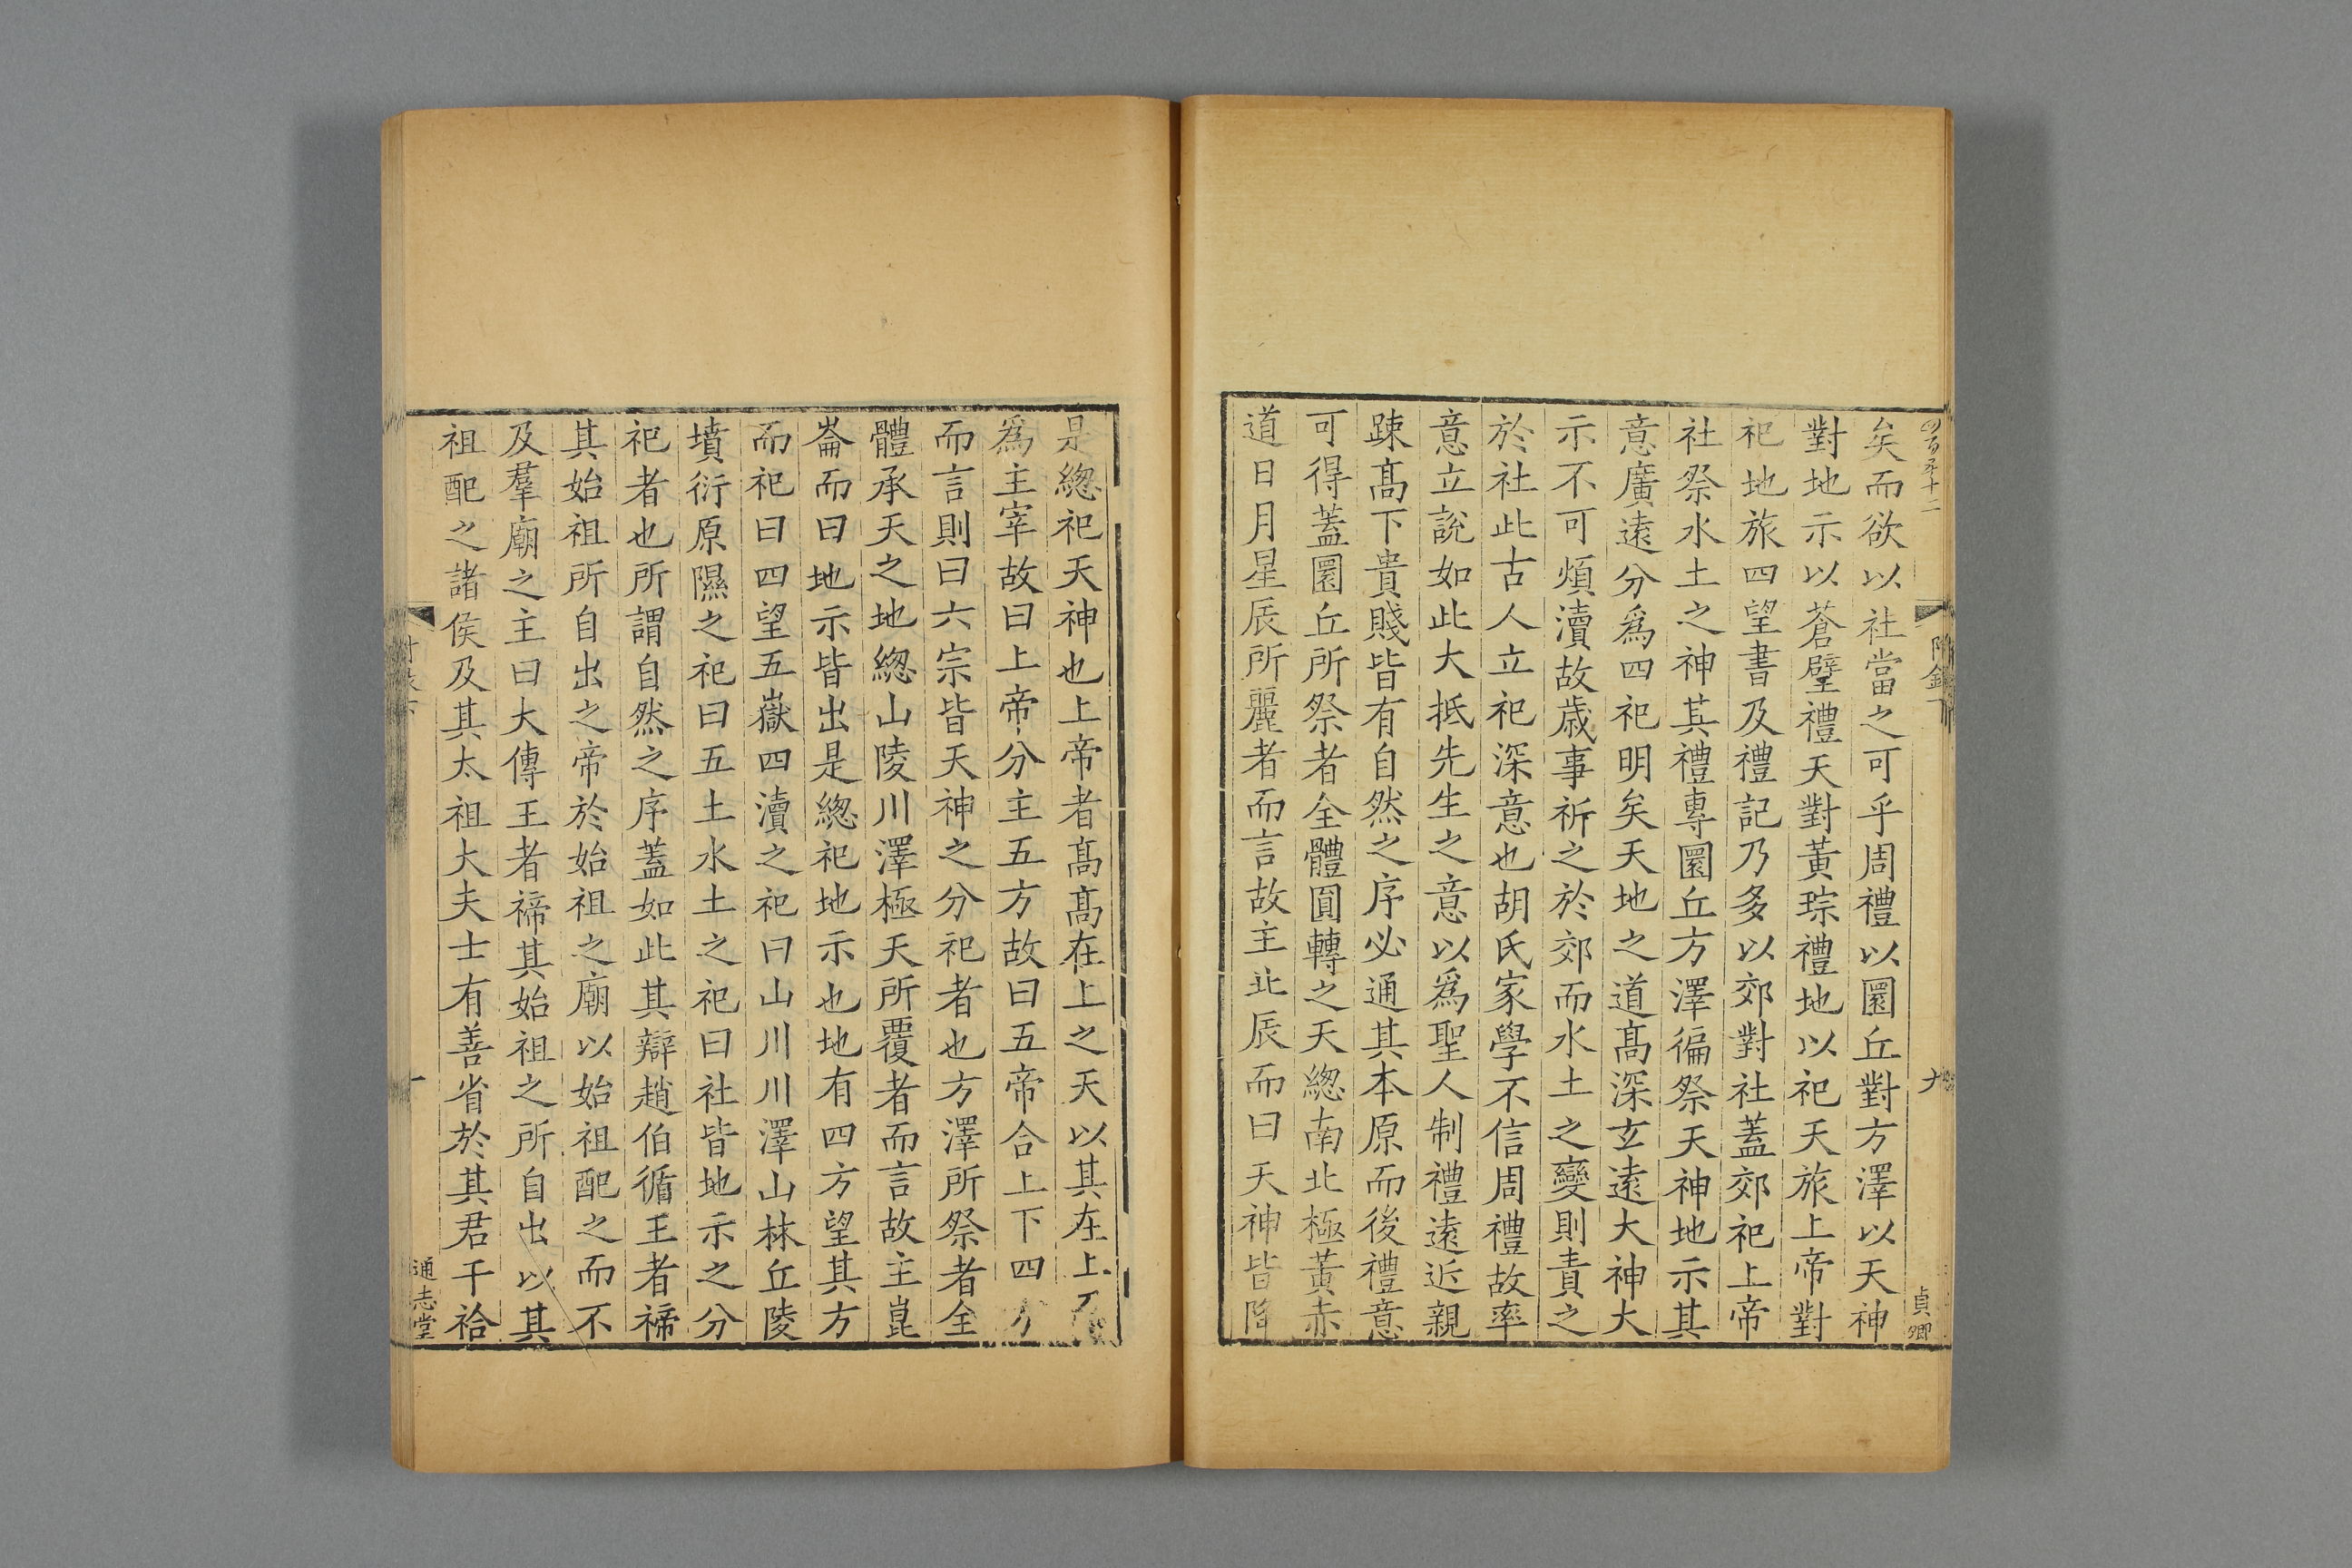 四百五十二
附錄下
九
貞卿
矣而欲以社當之可乎周禮以圜丘對方澤以天神
對地示以蒼璧禮天對黃琮禮地以祀天旅上帝對
祀地旅四望書及禮記乃多以郊對社蓋郊祀上帝
社祭水土之神其禮專圜丘方澤徧祭天神地示其
意廣遠分爲四祀明矣天地之道髙深玄遠大神大
示不可煩瀆故歲事祈之於郊而水土之變則責之
於社此古人立祀深意也胡氏家學不信周禮故率
意立說如此大抵先生之意以爲聖人制禮遠近親
踈髙下貴賤皆有自然之序必通其本原而後禮意
可得蓋圜丘所祭者全體圓轉之天緫南北極黃赤
道日月星辰所麗者而言故主北辰而曰天神皆降
是緫祀天神也上帝者髙髙在上之天以其在上而
爲主宰故曰上帝分主五方故曰五帝合上下四方
而言則曰六宗皆天神之分祀者也方澤所祭者全
體承天之地緫山陵川澤極天所覆者而言故主崑
崙而曰地示皆出是緫祀地示也地有四方望其方
而祀曰四望五嶽四瀆之祀曰山川川澤山林丘陵
墳衍原隰之祀曰五土水土之祀曰社皆地示之分
祀者也所謂自然之序蓋如此其辯趙伯循王者禘
其始祖所自出之帝於始祖之廟以始祖配之而不
及羣廟之主曰大傳王者禘其始祖之所自出以其
祖配之諸侯及其太祖大夫士有善省於其君干祫
通志堂